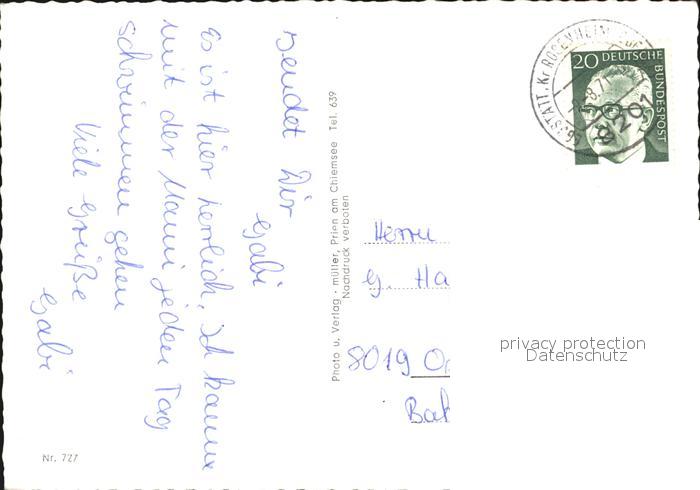 sendet Dir
Gabi
Es ist hier herrlich, ich kann
mit der Mami jeden Tag
schwimmen gehen
Viele Grüße
Gabi
Photo u. Verlag - müller, Prien am Chiemsee Tel. 639
Nachdruck verboten
Nr. 727
20 DEUTSCHE
BUNDESPOST
8201
Herrn
G. Ha
8019
privacy protection
Datenschutz